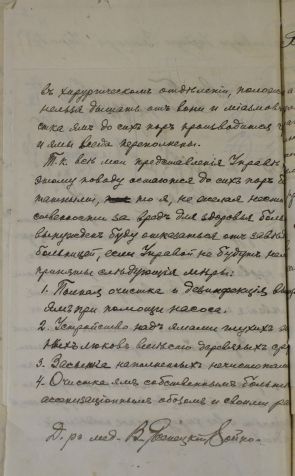 въ хирургическомъ отдѣленіи, положи
нельзя дышать отъ вони и міазмовъ
стка ямъ до сихъ поръ производится
и ямы всегда переполнены.
Т.к. всѣ мои представленія Управѣ
этому поводу остаются до сихъ поръ
то я, не желая нести
за вредъ для здоровья боль
вынужденъ буду отказаться отъ завѣд
больницей, если Управой не будутъ
приняты слѣдующія мѣры:
1. Полная очистка и дезинфекція
ямъ при помощи насоса.
2. Устройство надъ ямами глухихъ
люковъ вмѣсто деревянныхъ
3. Засыпка наполненныхъ нечистотами
4. Очистка ямъ собственнымъ больнич
ассенизаціоннымъ обозомъ и своими ра
Д-ръ мед. В.